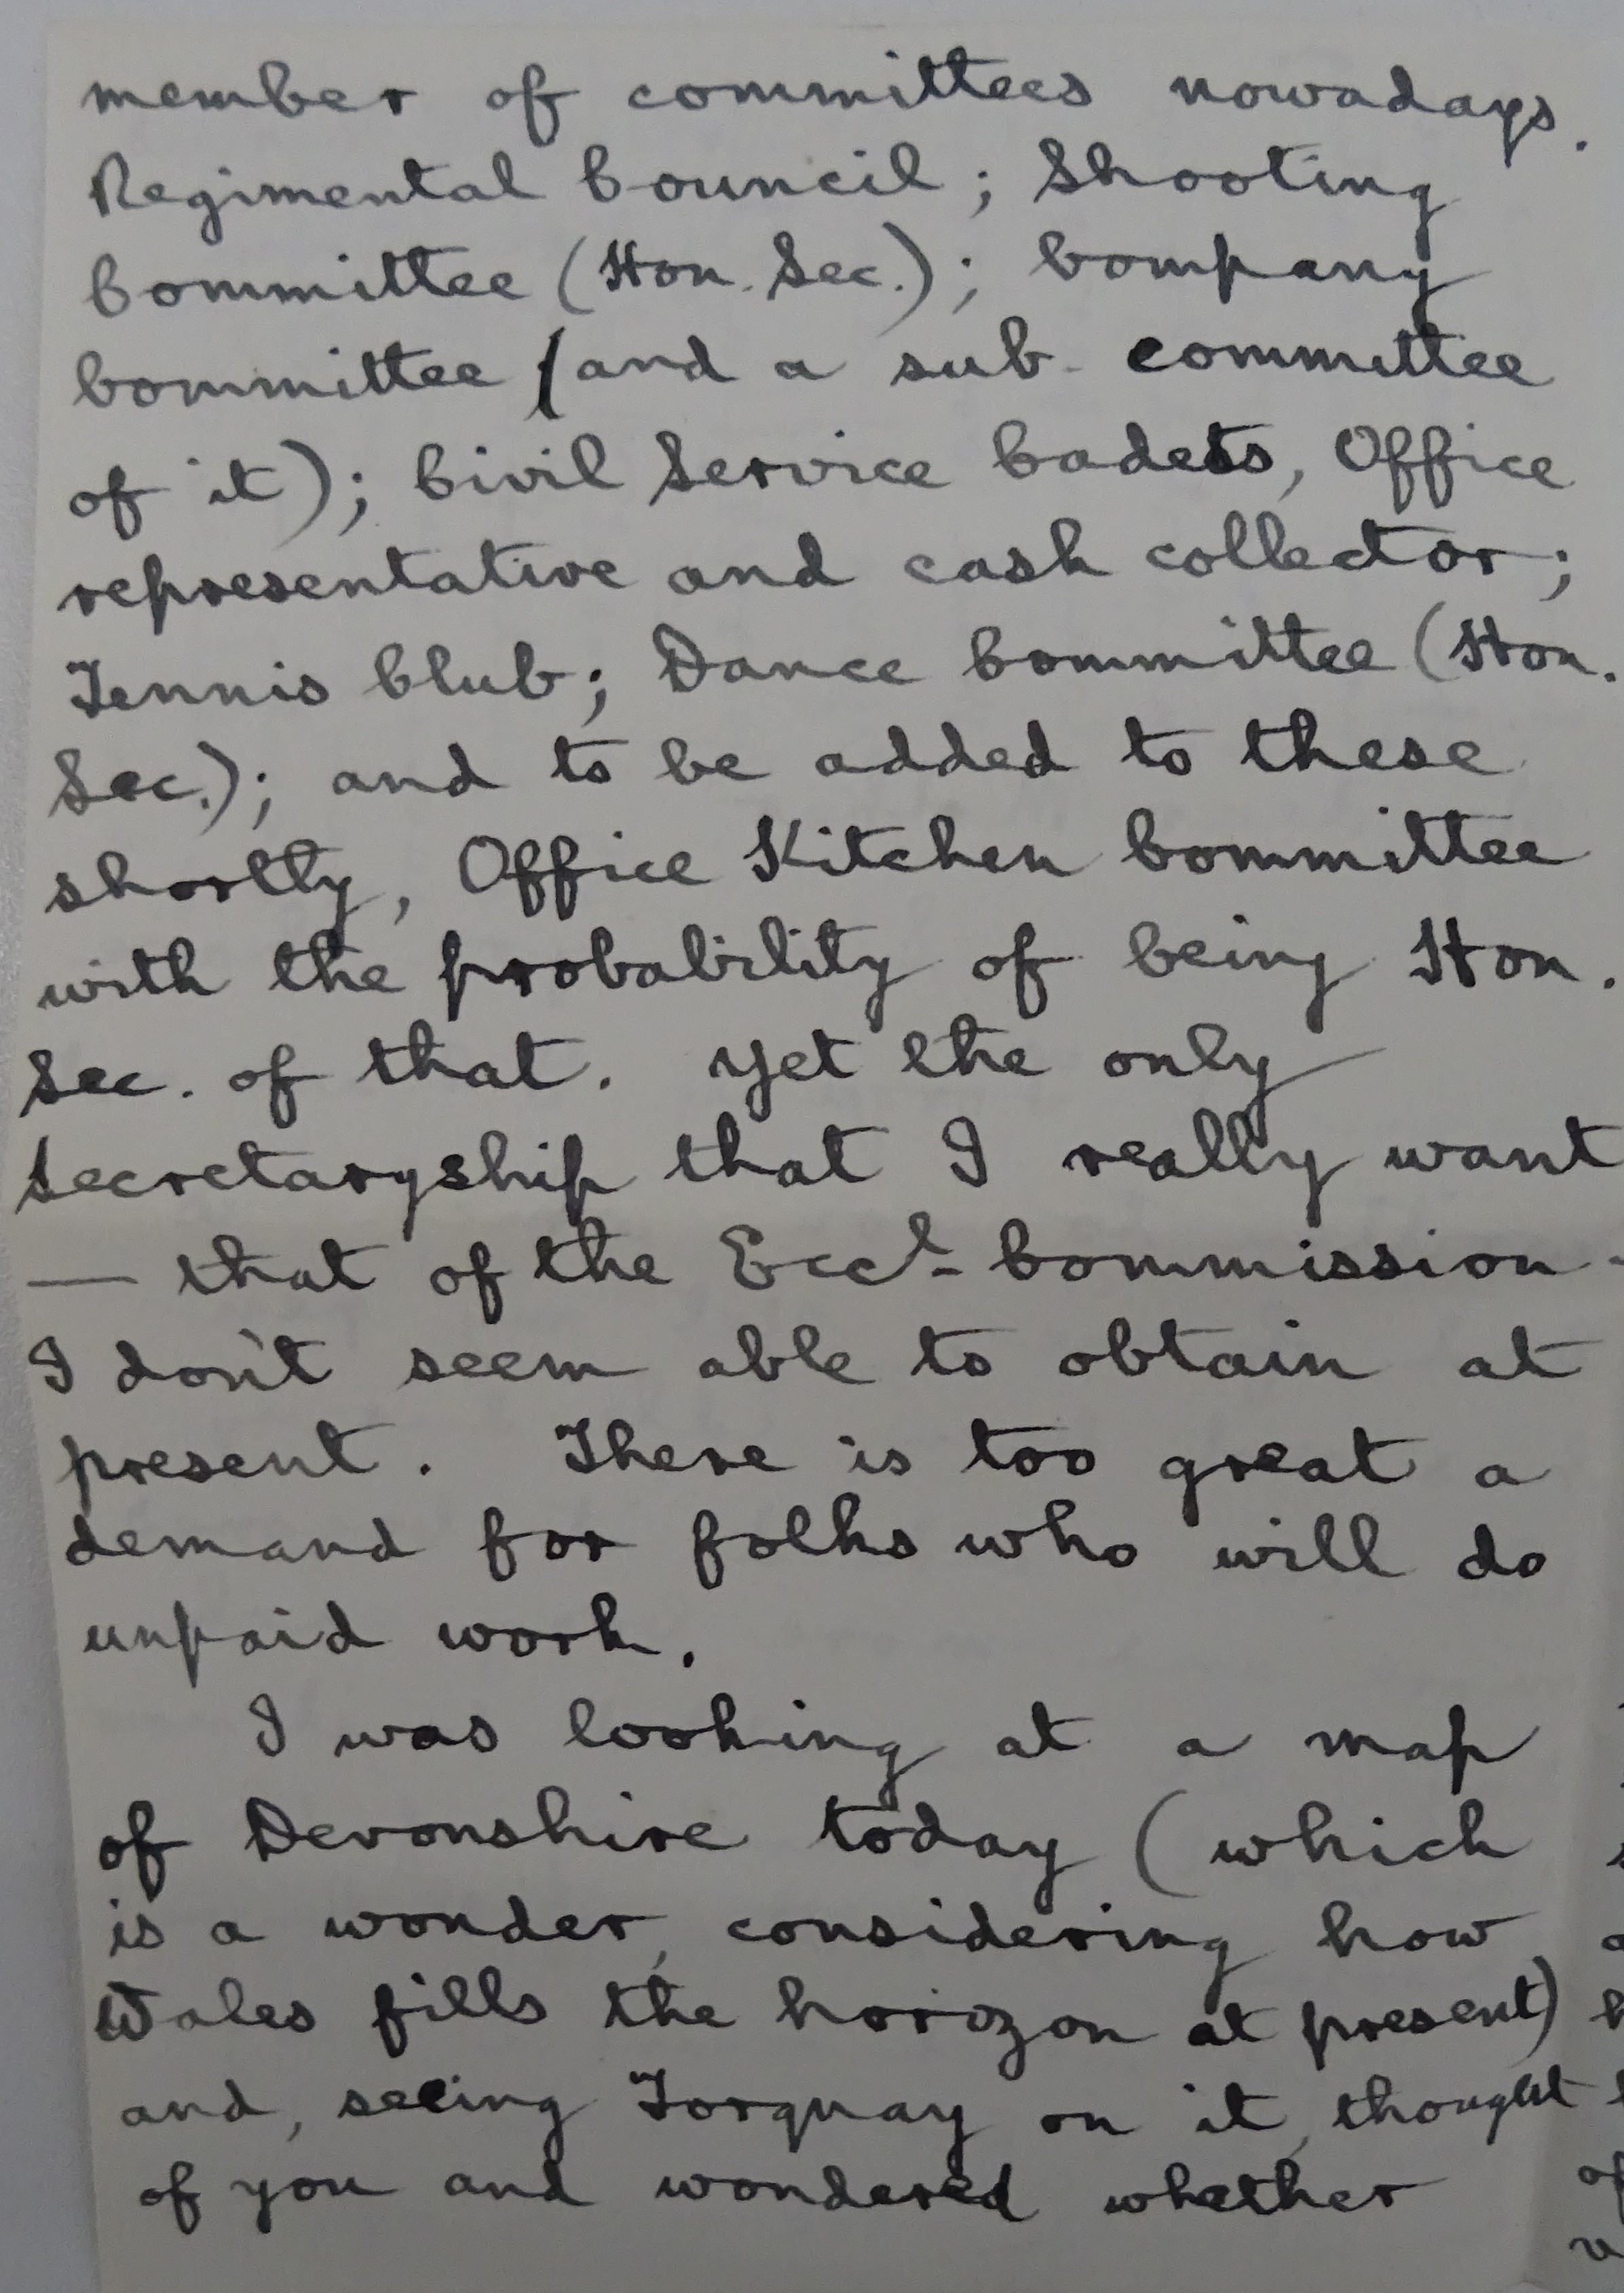 member of committees nowadays.
Regimental Council; Shooting
Committee (Hon. Sec.); Company
Committee (and a sub-committee
of it); Civil Service Cadets, Office
representative and cash collector;
Tennis Club; Dance Committee (Hon.
Sec.); and to be added to these
shortly, Office Kitchen Committee
with the probability of being Hon.
Sec. of that. Yet the only
Secretaryship that I really want
— that of the Eccl. Commission -
I don't seem able to obtain at
present. There is too great a
demand for folks who will do
unpaid work.
I was looking at a map
of Devonshire today (which
is a wonder, considering how
Wales fills the horizon at present)
and, seeing Torquay on it, thought
of you and wondered whether